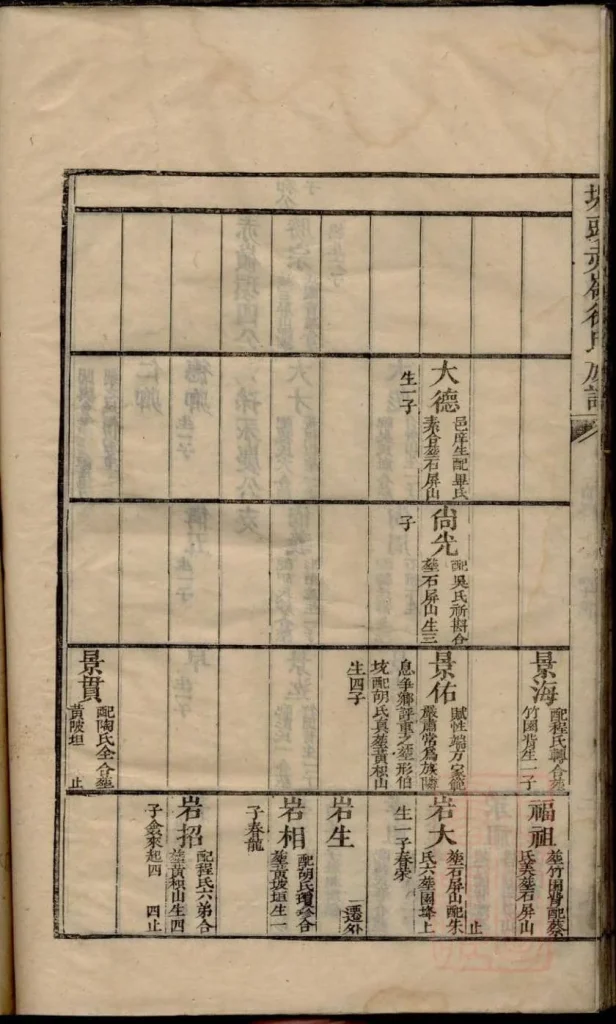 大德
邑庠生配畢氏
素合塟石屏山
生一子
尙光
配吳氏新掛合
塟石屏山生三
子
景海
配程氏轉合塟
竹園背生一子
景佑
賦性端方家範
嚴肅常為族隣
息爭鄉評重之塟形伯
坑配胡氏真塟黃根山
生四子
景貫
配陶氏全合塟
黃陂坦 止
福祖
塟竹園背配蔡
氏美塟石屏山
止
岩大
塟石屏山配朱
氏六塟園塝上
生一子春榮
岩生
遷外
岩相
配胡氏瓊合
塟黃坡垣生一
子春龍
岩招
配程氏六弟合
塟黃根山生四
子 來起四 四止